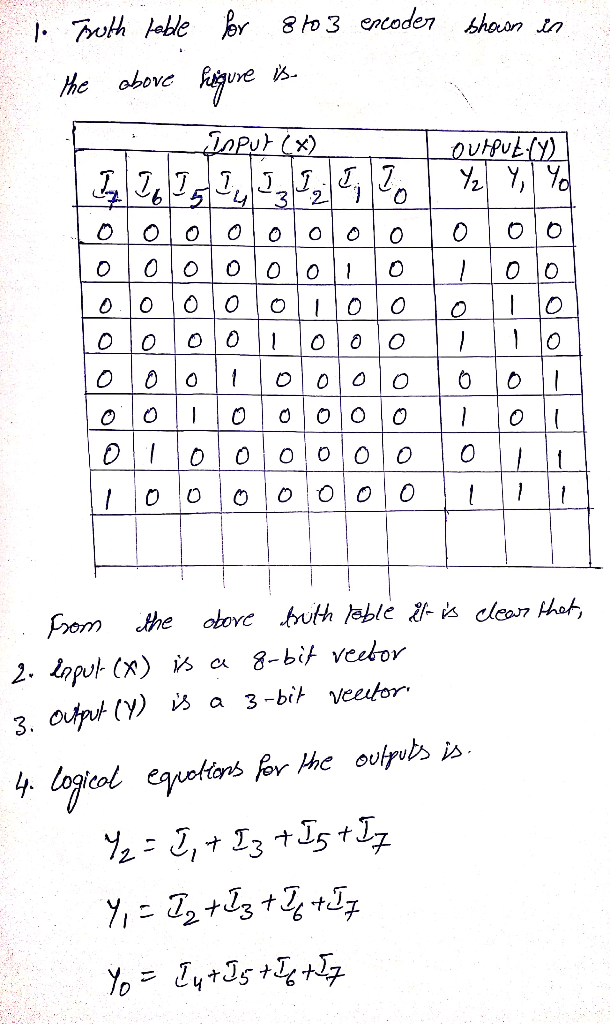 1. Truth table for 8 to 3 encoder shown in
the above figure is.
Input (X) Output (Y)
I7 I6 I5 I4 I3 I2 I1 I0 Y2 Y1 Y0
0 0 0 0 0 0 0 0 0 0 0
0 0 0 0 0 0 1 0 1 0 0
0 0 0 0 0 1 0 0 0 1 0
0 0 0 0 1 0 0 0 1 1 0
0 0 0 1 0 0 0 0 0 0 1
0 0 1 0 0 0 0 0 1 0 1
0 1 0 0 0 0 0 0 0 1 1
1 0 0 0 0 0 0 0 1 1 1
From the above truth table it is clear that,
2. Input (X) is a 8-bit vector
3. Output (Y) is a 3-bit vector.
4. Logical equations for the outputs is.
Y2 = I1 + I3 + I5 + I7
Y1 = I2 + I3 + I6 + I7
Y0 = I4 + I5 + I6 + I7